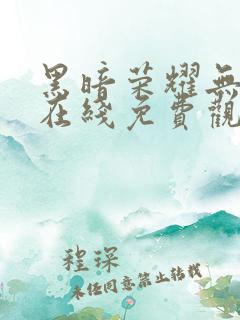 黑暗荣耀無
在綫免費觀
程琛
未经同意禁止转载